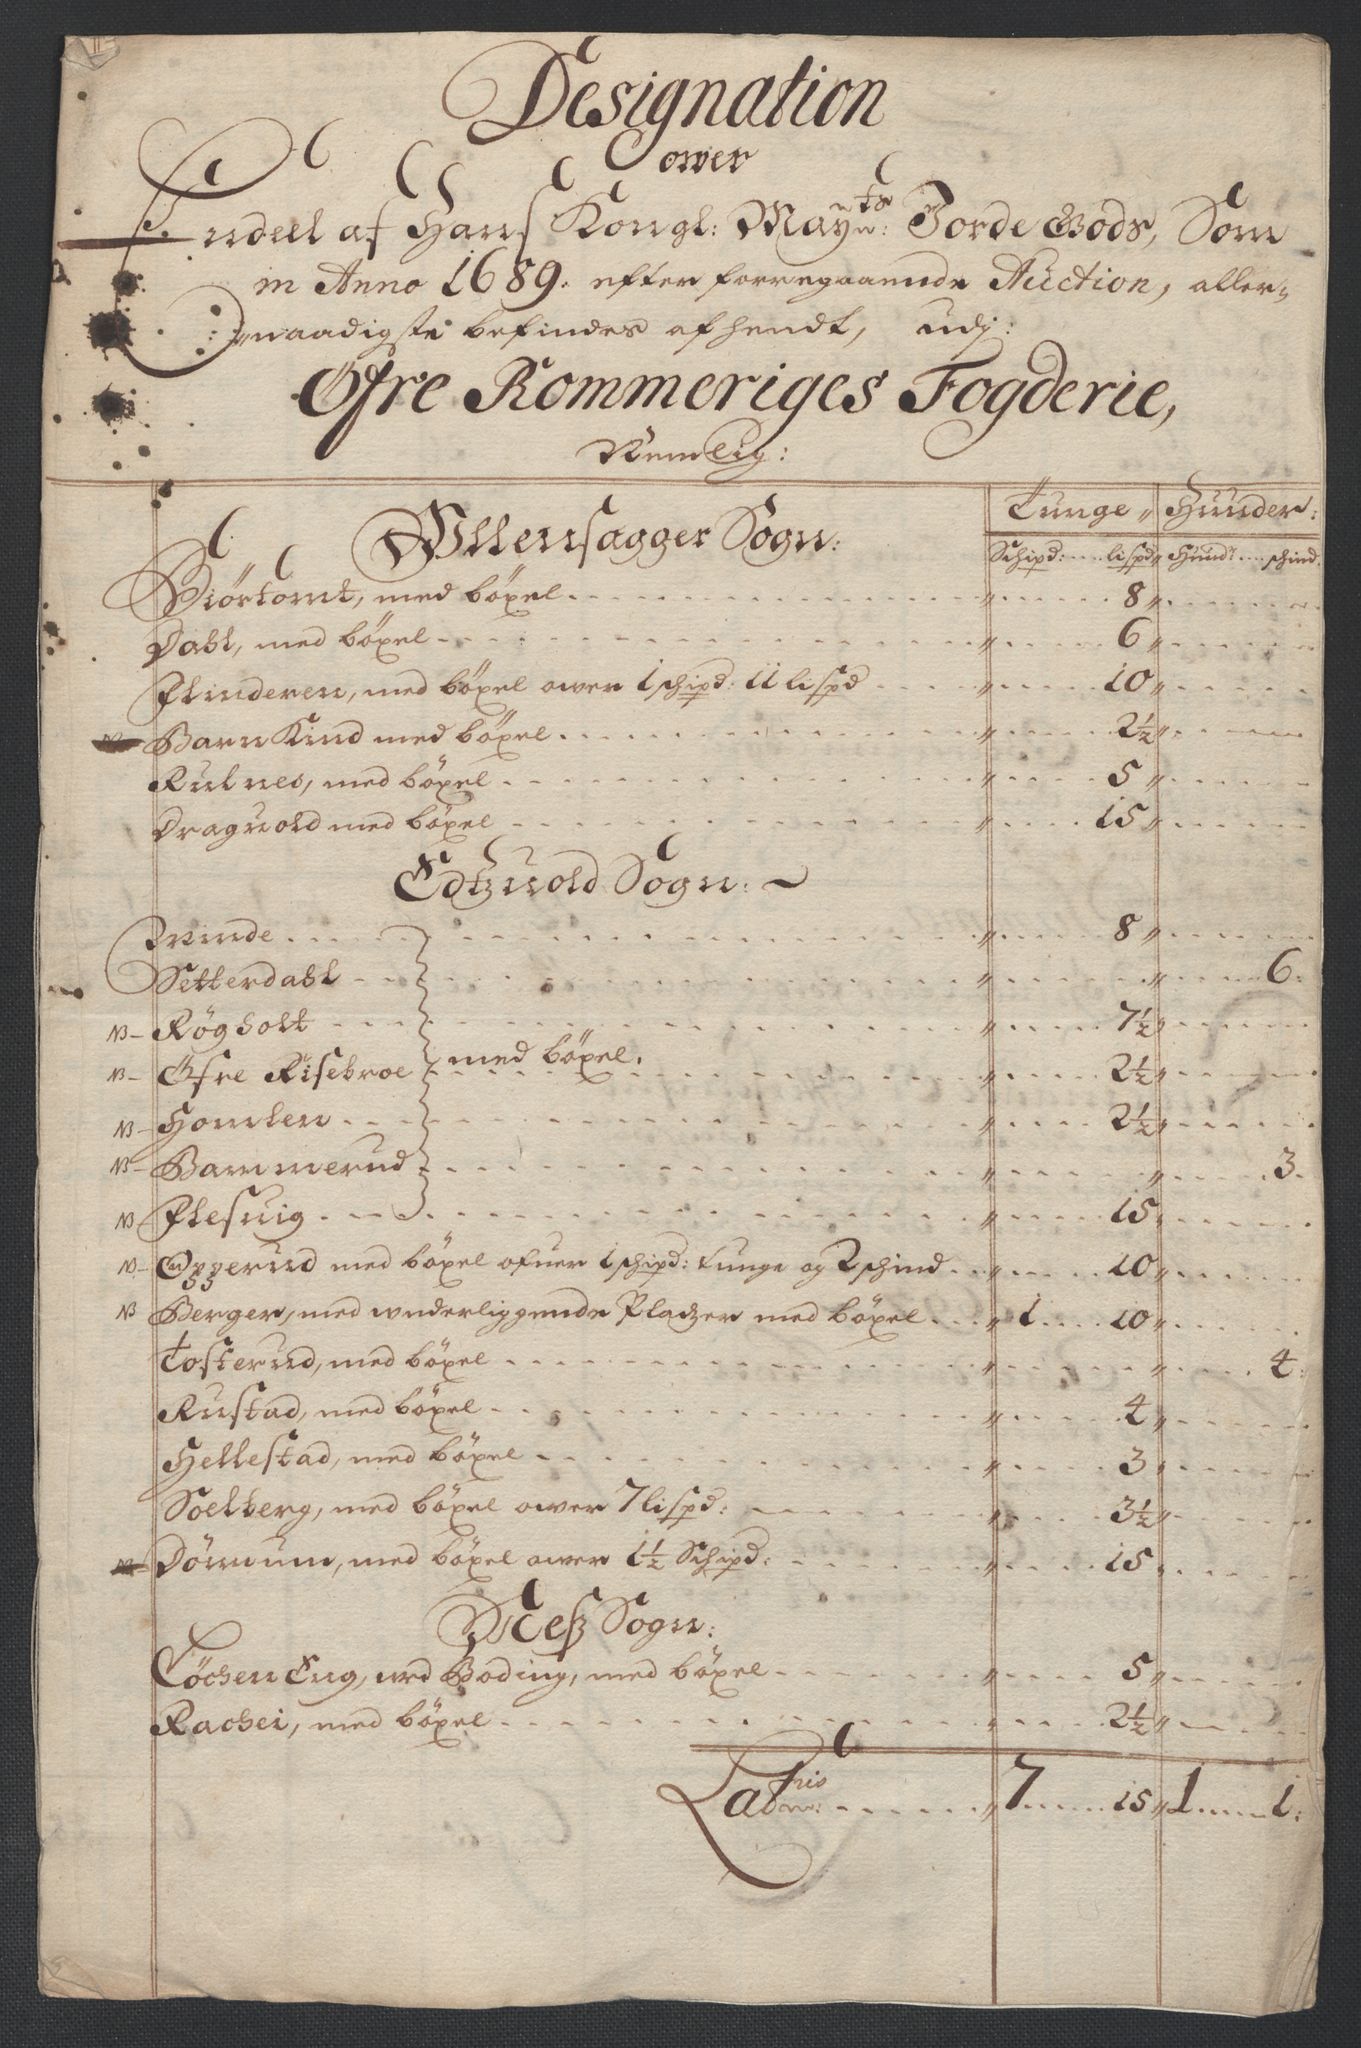 Designation
ower
Endeel af Hans Kongl: May.ts Jorde Gods, Som
in Anno 1689. efter forregaaende Auction, aller„
„naadigste befindes afhendt, udj:
Øfre Rommeriges Fogderie,
Nemlig:
Tunge „ Huuder:
Ullensagger Sogn:
Schipd: .... lispd „ Hund: .... schind
Biörtomt, med böxel 8 „
Dahl, med böxel 6 „
Flinderen, med böxel ower 1 schipd: 11 lispd 10 „
NB Barn Kind med böxel 2½ „
Rulnes, med böxel 5 „
Draguold med böxel 15
Edtzuold Sogn:
Winde 8 „
Setterdahl „ 6.
NB– Røgholt 7½
NB– Øfre Risebroe med böxel. 2½ „
NB– Homlen 2½ „
NB– Bammerud „ 3.
NB Flesuig 15
NB– Opperud med böxel ofuer 1 schipd: tunge og 2 schind 10
NB Berger, med underliggende Pladzer med böxel 1 10
Tosterud, med böxel „ 4:
Rustad, med böxel 4 „
Hellestad, med böxel 3
Soelberg, med böxel ower 7 lispd: 3½ „
NB Dömum, med böxel ower 1½ Schipd: 15
Neß Sogn:
Löchen Eng, ved Boding, med böxel 5 „
Rachei, med böxel 2½ „
Latris 7 15 „ 1 1: